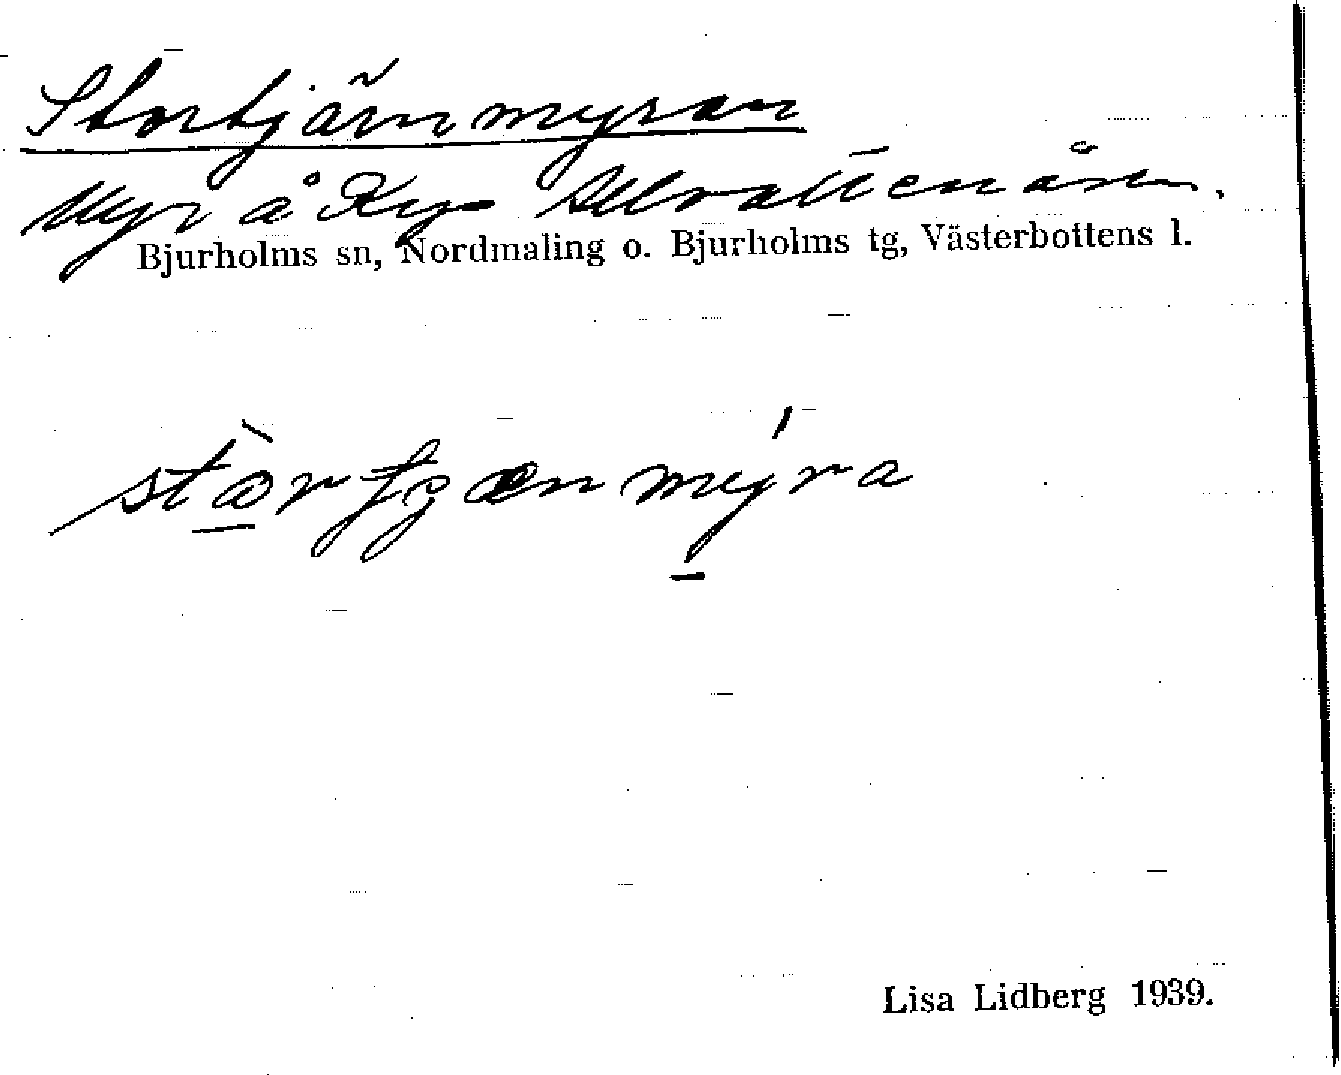 Stortjärnmyran
Myr å Ky-
Bjurholms sn, Nordmaling o. Bjurholms tg, Västerbottens l.
stòrtjænmýra
Lisa Lidberg 1939.